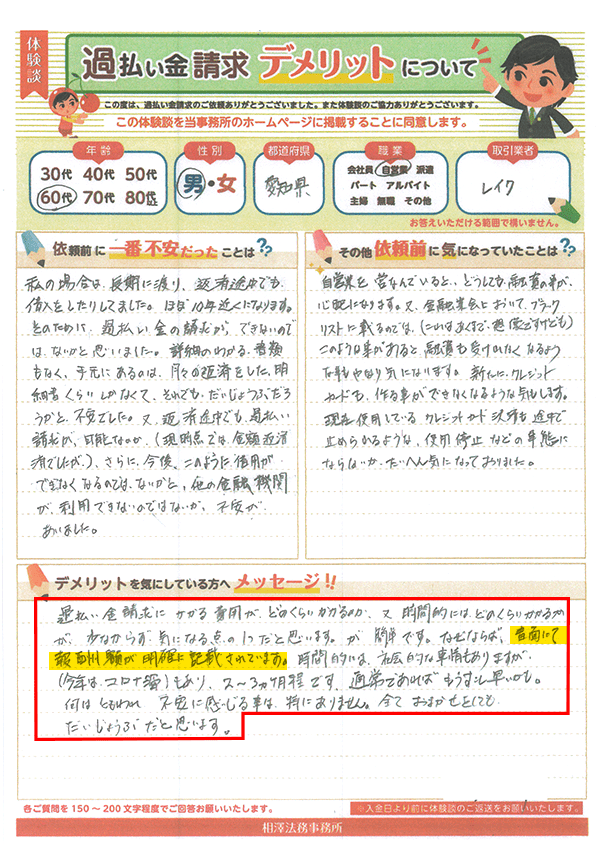 体験談
過払い金請求 デメリットについて
この度は、過払い金請求のご依頼ありがとうございました。また体験談のご協力ありがとうございます。
この体験談を当事務所のホームページに掲載することに同意します。
年齢
30代 40代 50代
60代 70代 80代以上
性別
男・女
都道府県
愛知県
職業
会社員 自営業 派遣
パート アルバイト
主婦 無職 その他
取引業者
レイク
お答えいただける範囲で構いません。
依頼前に一番不安だったことは??
私の場合は、長期に渡り、返済途中でも、
借入をしたりしてました。ほぼ10年近くになります。
そのために、過払い金の請求が、できないので
は、ないかと思いました。詳細のわかる、書類
もなく、手元にあるのは、月々の返済をした、明
細書くらいしかなくて、それでも、だいじょうぶだろ
うかと、不安でした。又、返済途中でも、過払い
請求が、可能なのか、(現時点では、全額返済
済でしたが、)、さらに、今後、このように信用が
できなくなるのでは、ないかと、他の金融機関
が、利用できないのではないか、不安が
ありました。
その他依頼前に気になっていたことは??
自営業を営なんでいると、どうしても、融資の事が、
心配になります。又、金融業会において、ブラック
リストに載るのでは、(これはあくまで、想定ですけども)
このような事があると、融資も受けれなくなるよう
な事もやはり気になります。新たに、クレジット
カードも、作る事ができなくなるような気もします。
現在使用しているクレジットカード決済も途中で
止められるような、使用停止などの事態に
ならないか、たいへん気になっておりました。
デメリットを気にしている方へメッセージ!!
過払い金請求にかかる費用が、どのくらいかかるのか、又、時間的には、どのくらいかかるか
が、少なからず、気になる点の1つだと思います。が、簡単です。なぜならば、書面にて
報酬額が明確に記載されています。時間的には、社会的な事情もありますが、
(今年は、コロナ禍)もあり、2〜3ヵ月程です、通常であればもう少し早いかも。
何はともあれ、不安に感じる事は、特にありません。全ておまかせをしても
だいじょうぶだと思います。
各ご質問を150〜200文字程度でご回答お願いいたします。
※入金日より前に体験談のご返送をお願いいたします。
相澤法務事務所